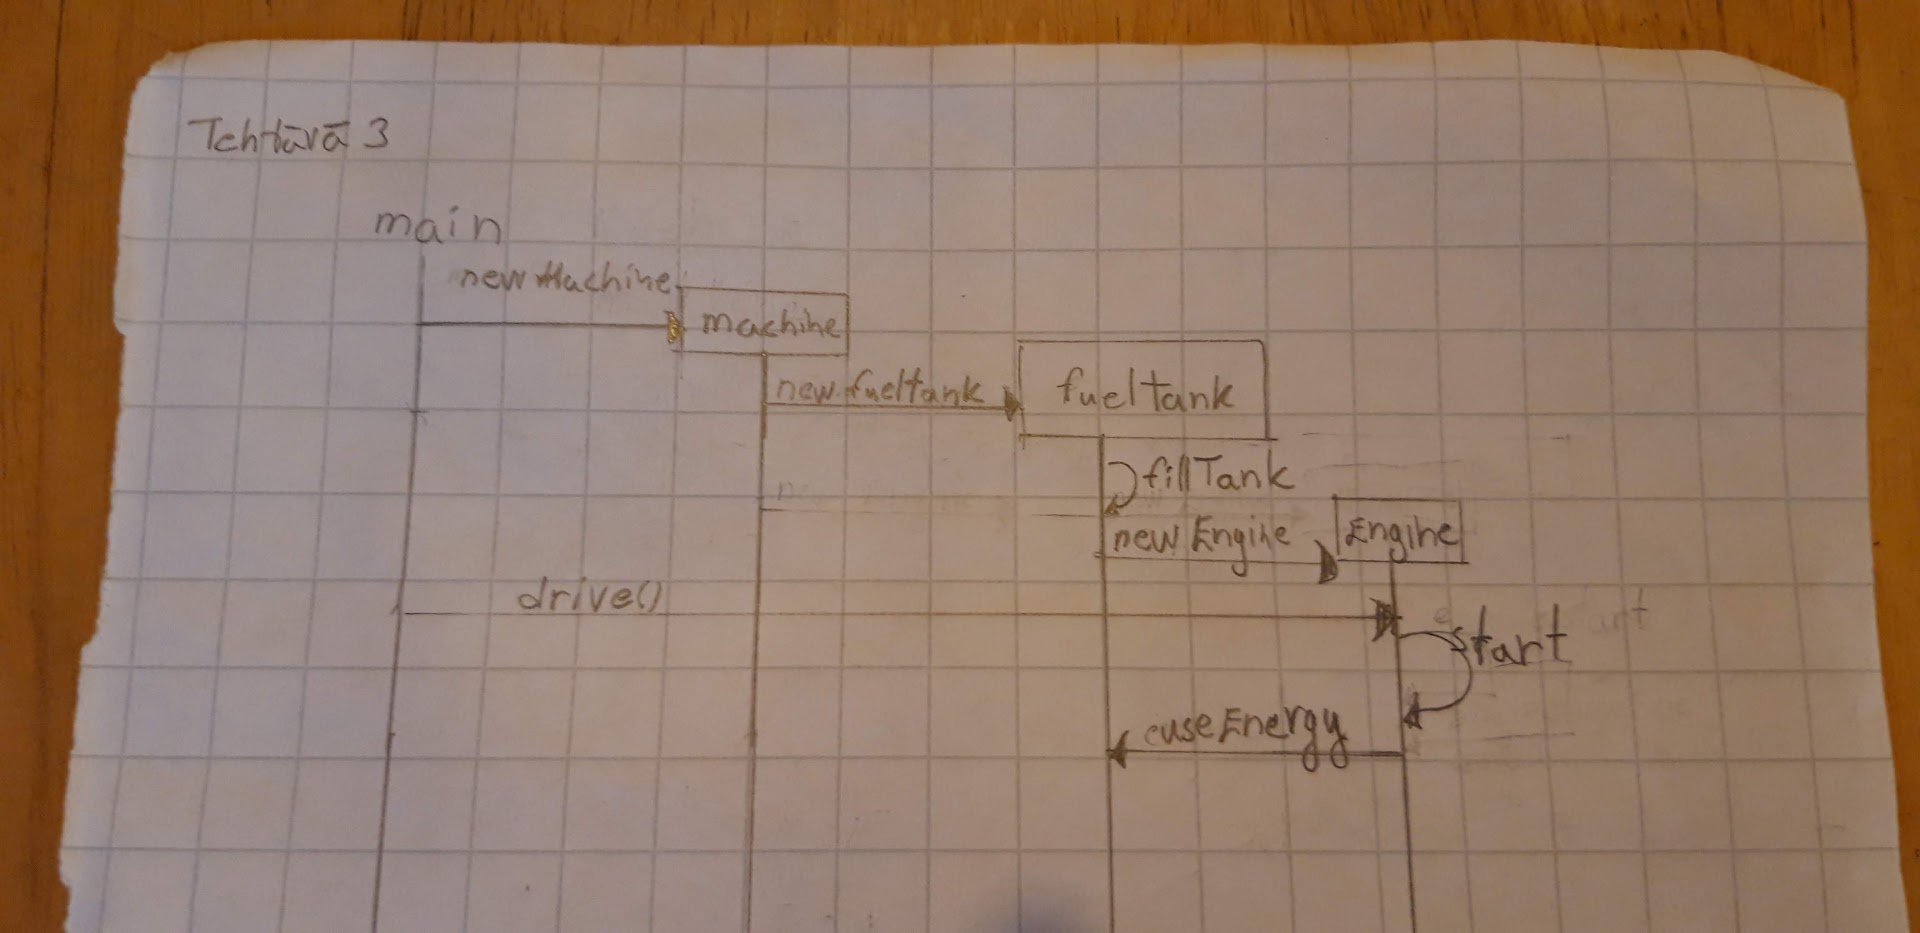 Tehtävä 3
main
new Machine
machine
new fueltank
fueltank
fillTank
new Engine
Engine
drive()
start
useEnergy